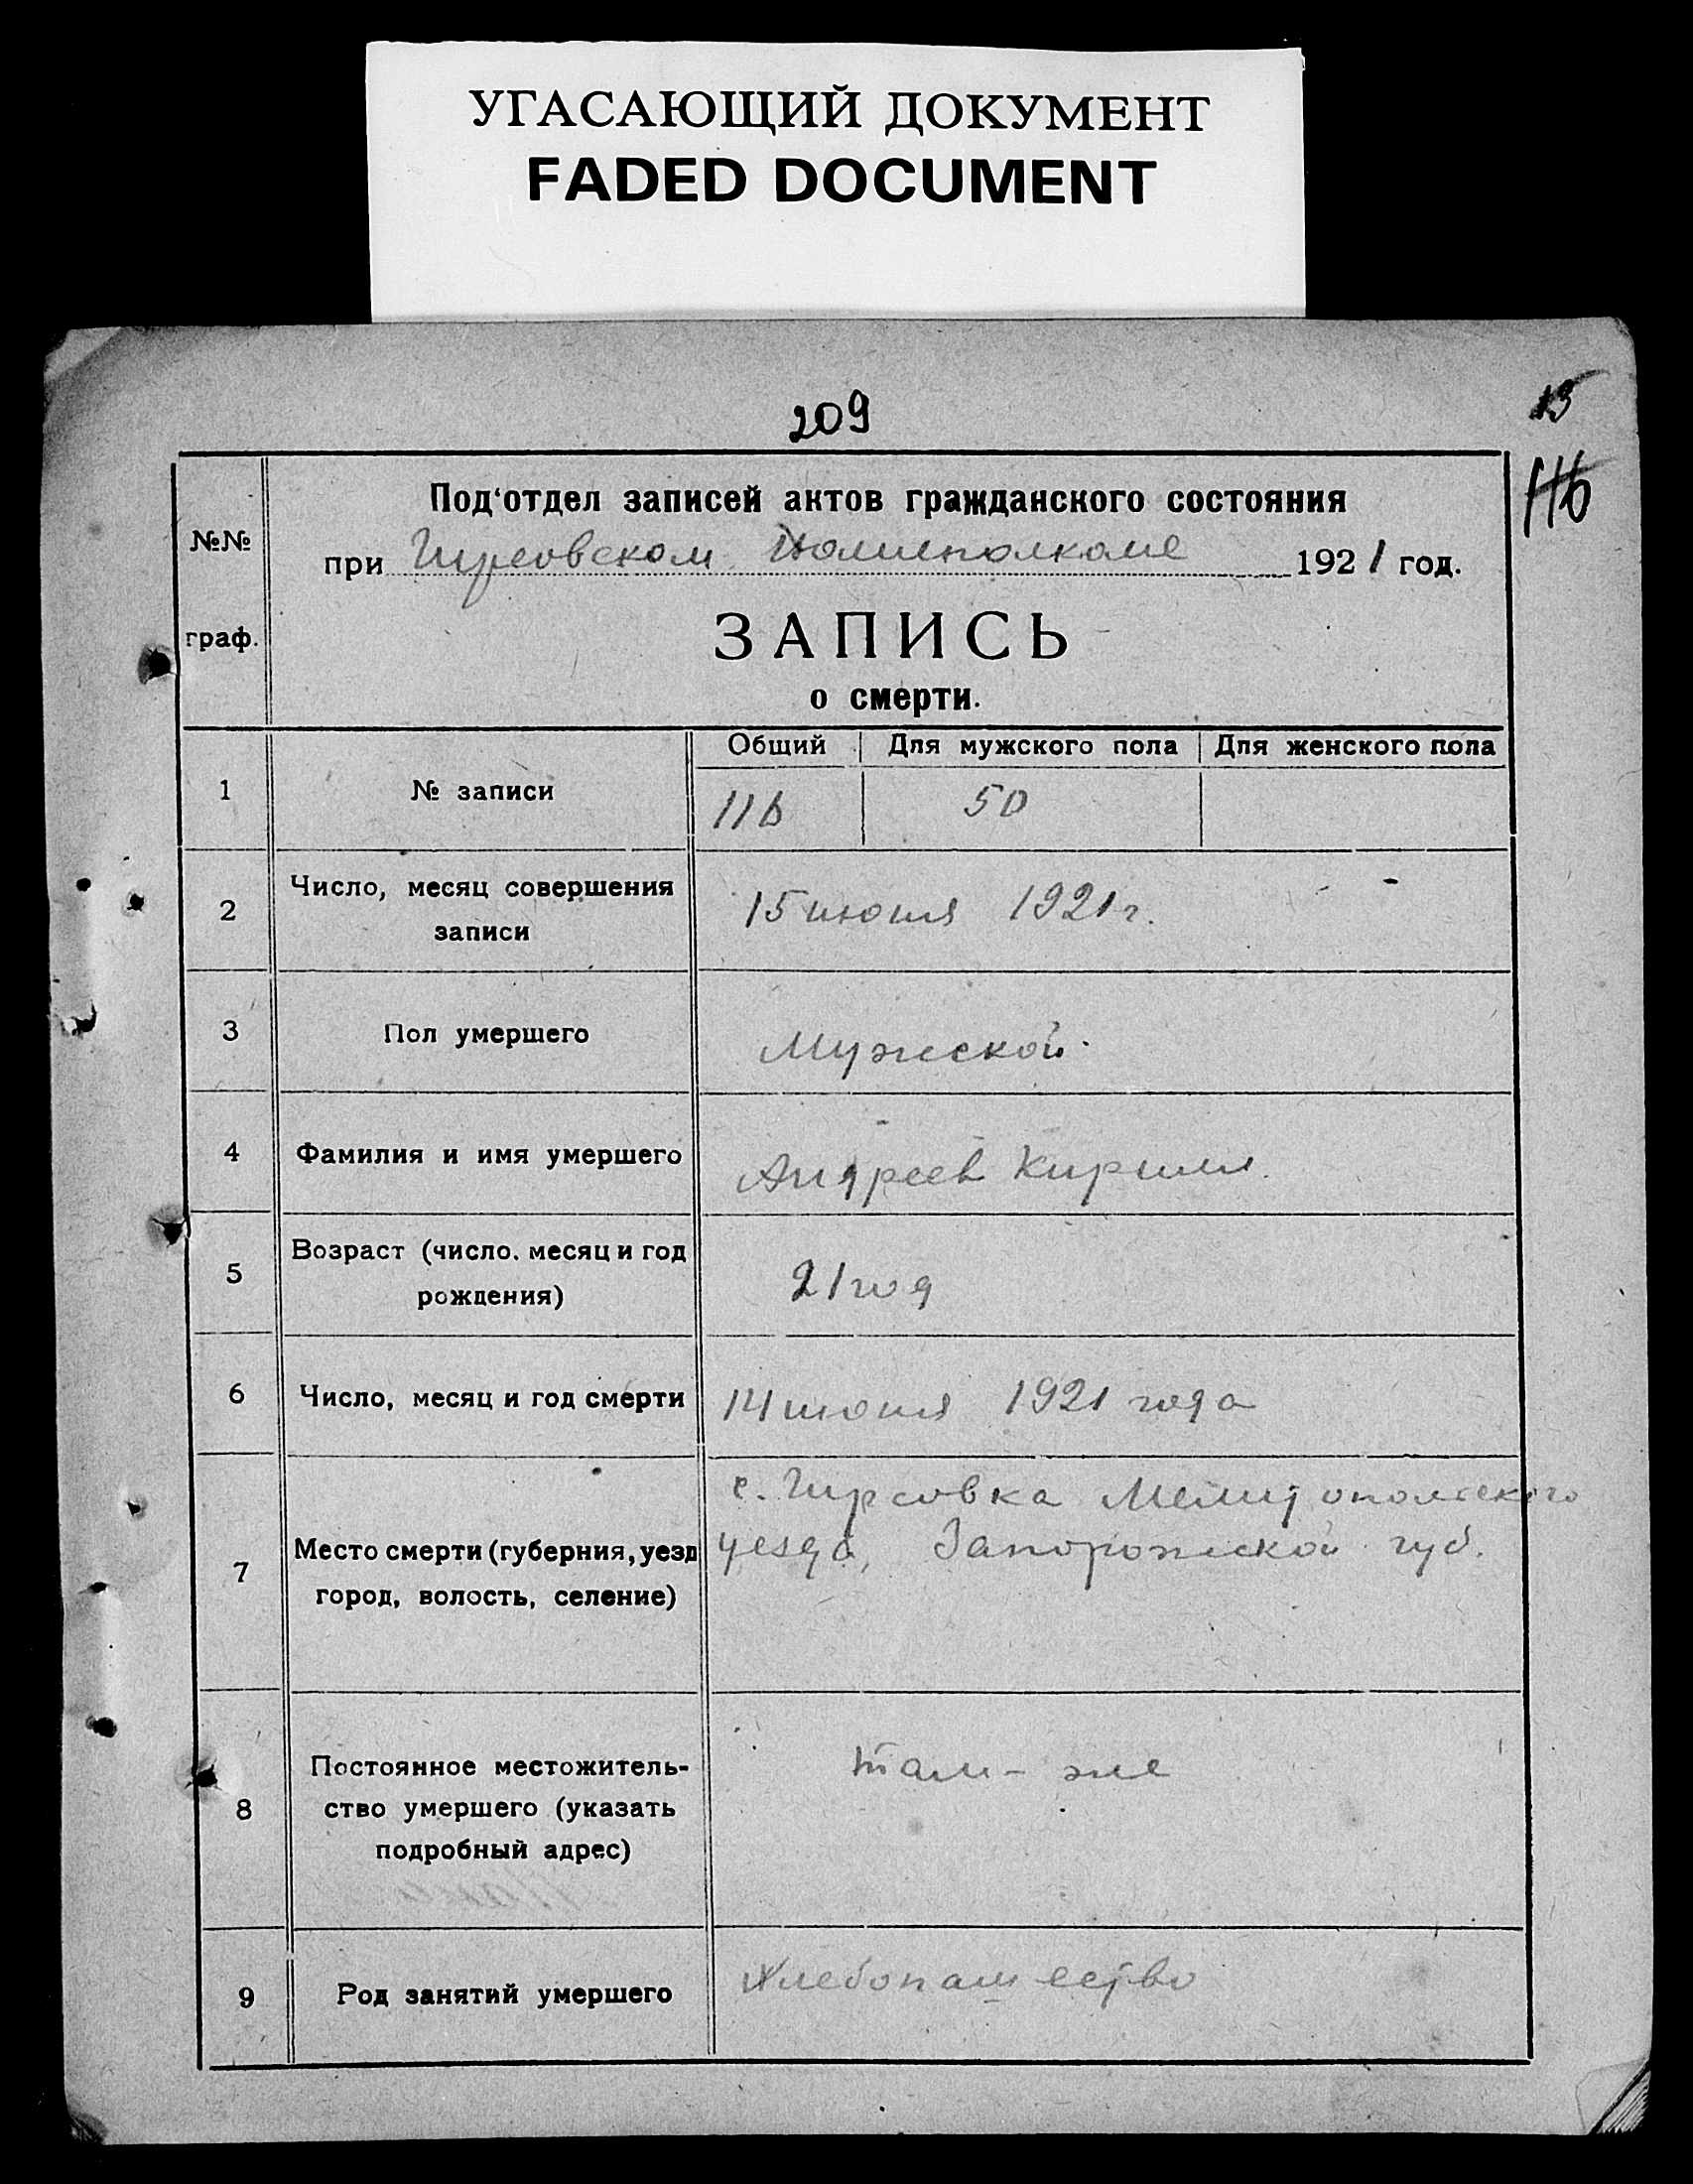 УГАСАЮЩИЙ ДОКУМЕНТ
FADED DOCUMENT
209
13
116
№№ граф.
Под‘отдел записей актов гражданского состояния
при Гирсовском Волисполкоме 1921 год.
ЗАПИСЬ
о смерти.
Общий Для мужского пола Для женского пола
1 № записи 116 50
2 Число, месяц совершения
записи
15 июня 1921 г.
3 Пол умершего Мужской.
4 Фамилия и имя умершего Андреев Кирилл.
5 Возраст (число. месяц и год
рождения)
21 год
6 Число, месяц и год смерти 14 июня 1921 года
7 Место смерти (губерния, уезд
город, волость, селение)
с. Гирсовка Мелитопольского
уезда, Запорожской губ.
8 Постоянное местожитель-
ство умершего (указать
подробный адрес)
там-же
9 Род занятий умершего Хлебопашество